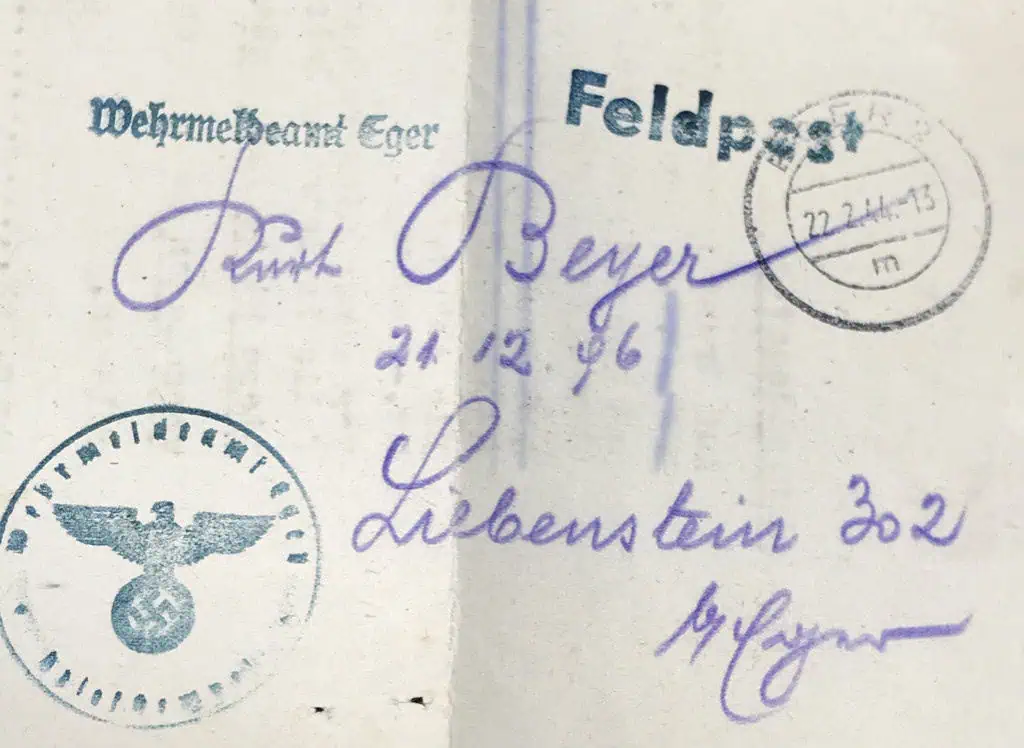 Wehrmeldeamt Eger
Feldpost
EGER 2
22.2.44.-13
m
Kurt Beyer
21 12 96
Liebenstein 302
b/ Eger
Wehrmeldeamt Eger